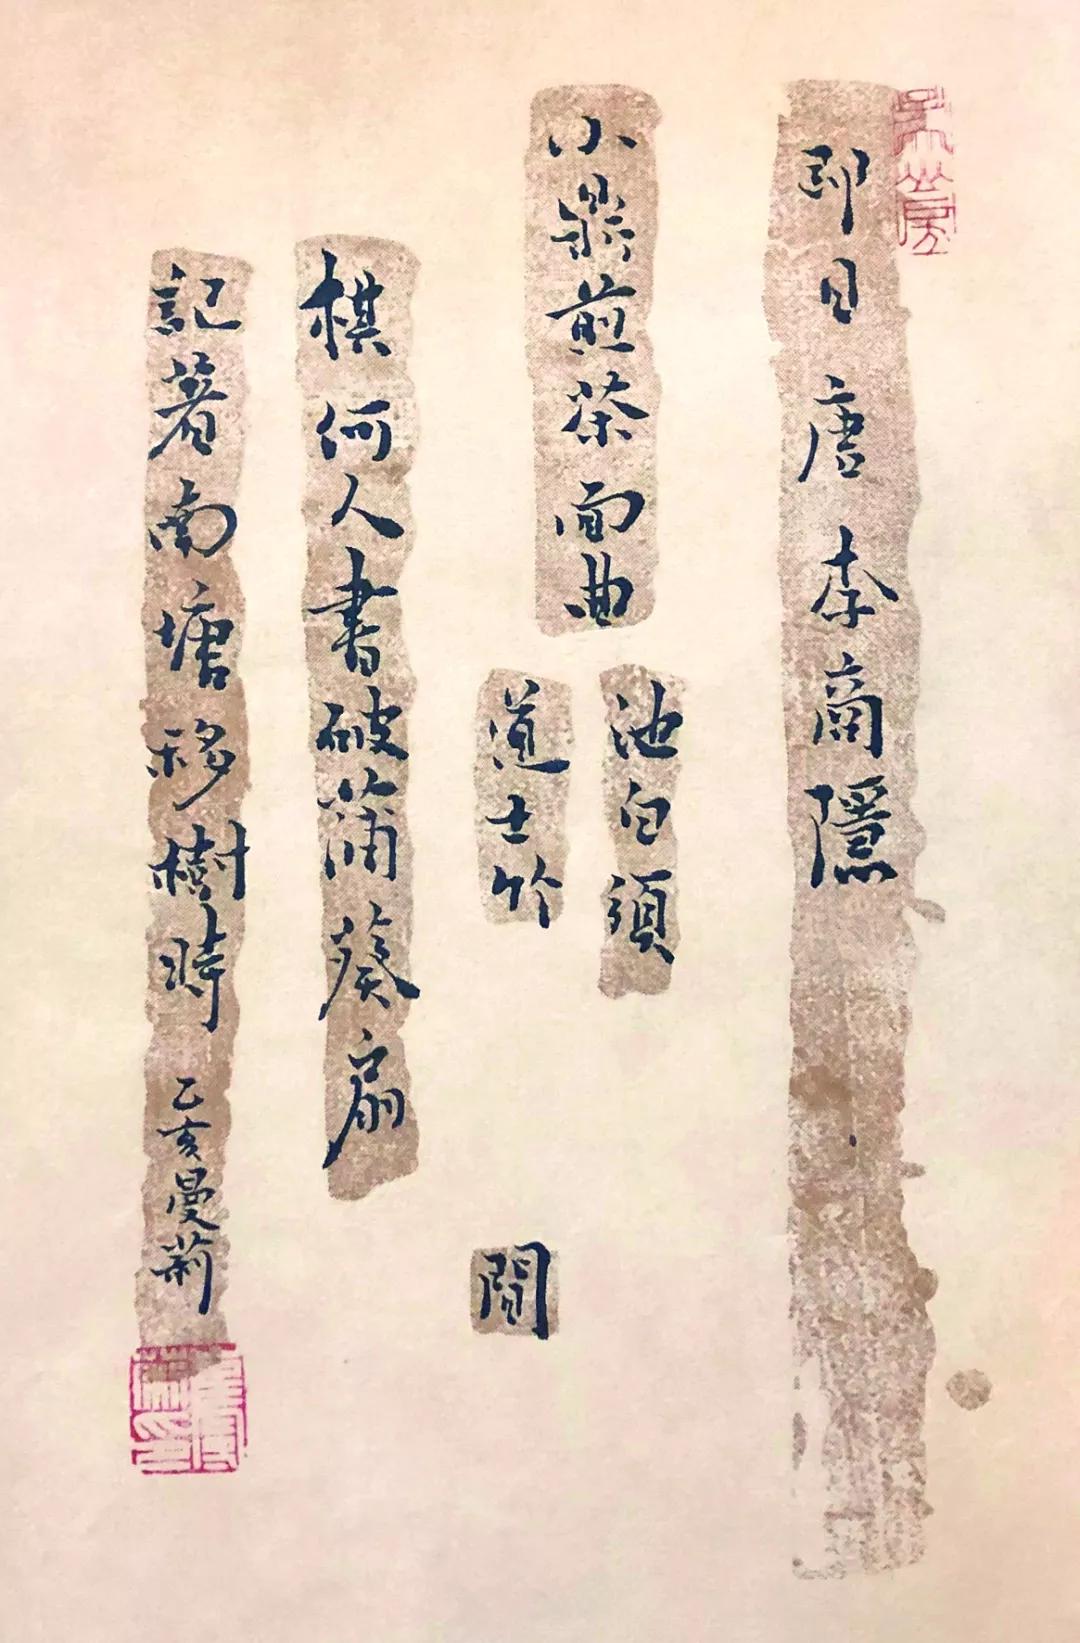 即目唐李商隱
小鼎煎茶面曲
池白須
道士竹
間
棋何人書破蒲葵扇
記著南塘移樹時 乙亥曼莉